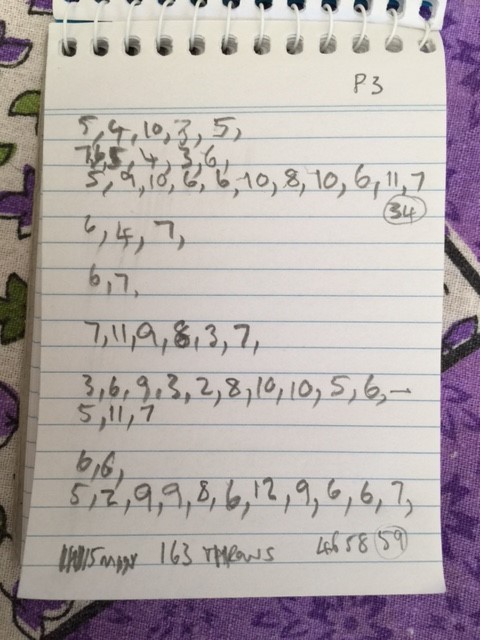 P3
5, 4, 10, 3, 5,
4, 3, 6,
5, 9, 10, 6, 6, 10, 8, 10, 6, 11, 7
34
6, 4, 7,
6, 7,
7, 11, 9, 8, 3, 7,
3, 6, 9, 3, 2, 8, 10, 10, 5, 6, –
5, 11, 7
6, 6,
5, 2, 9, 9, 8, 6, 12, 9, 6, 6, 7,
163 THROWS 46 58 59